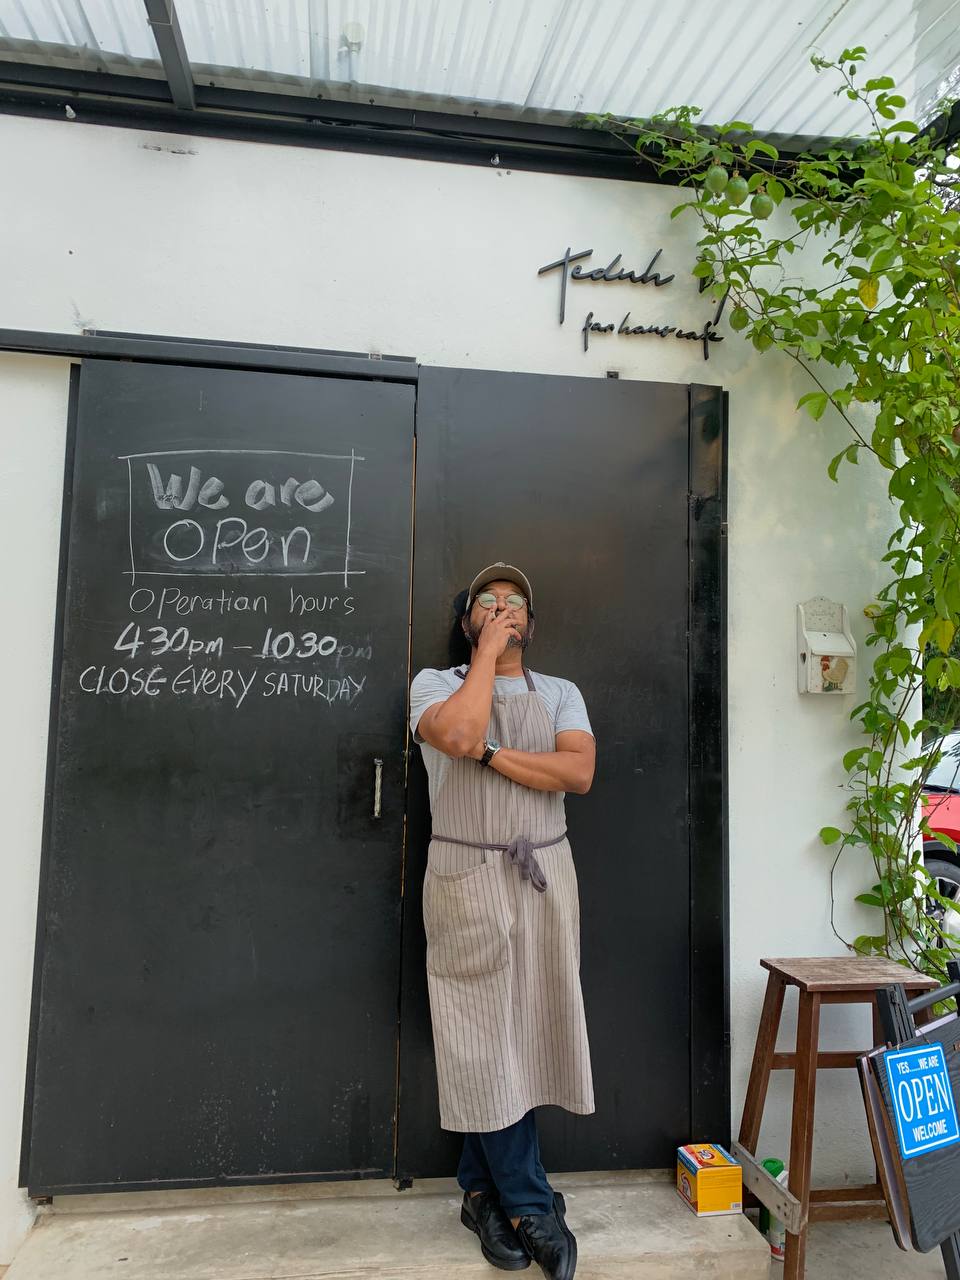 teduh
fan haus cafe
We are
OPen
OPeration hours
430pm – 1030pm
CLOSE EVERY SATURDAY
YES.....WE ARE
OPEN
WELCOME